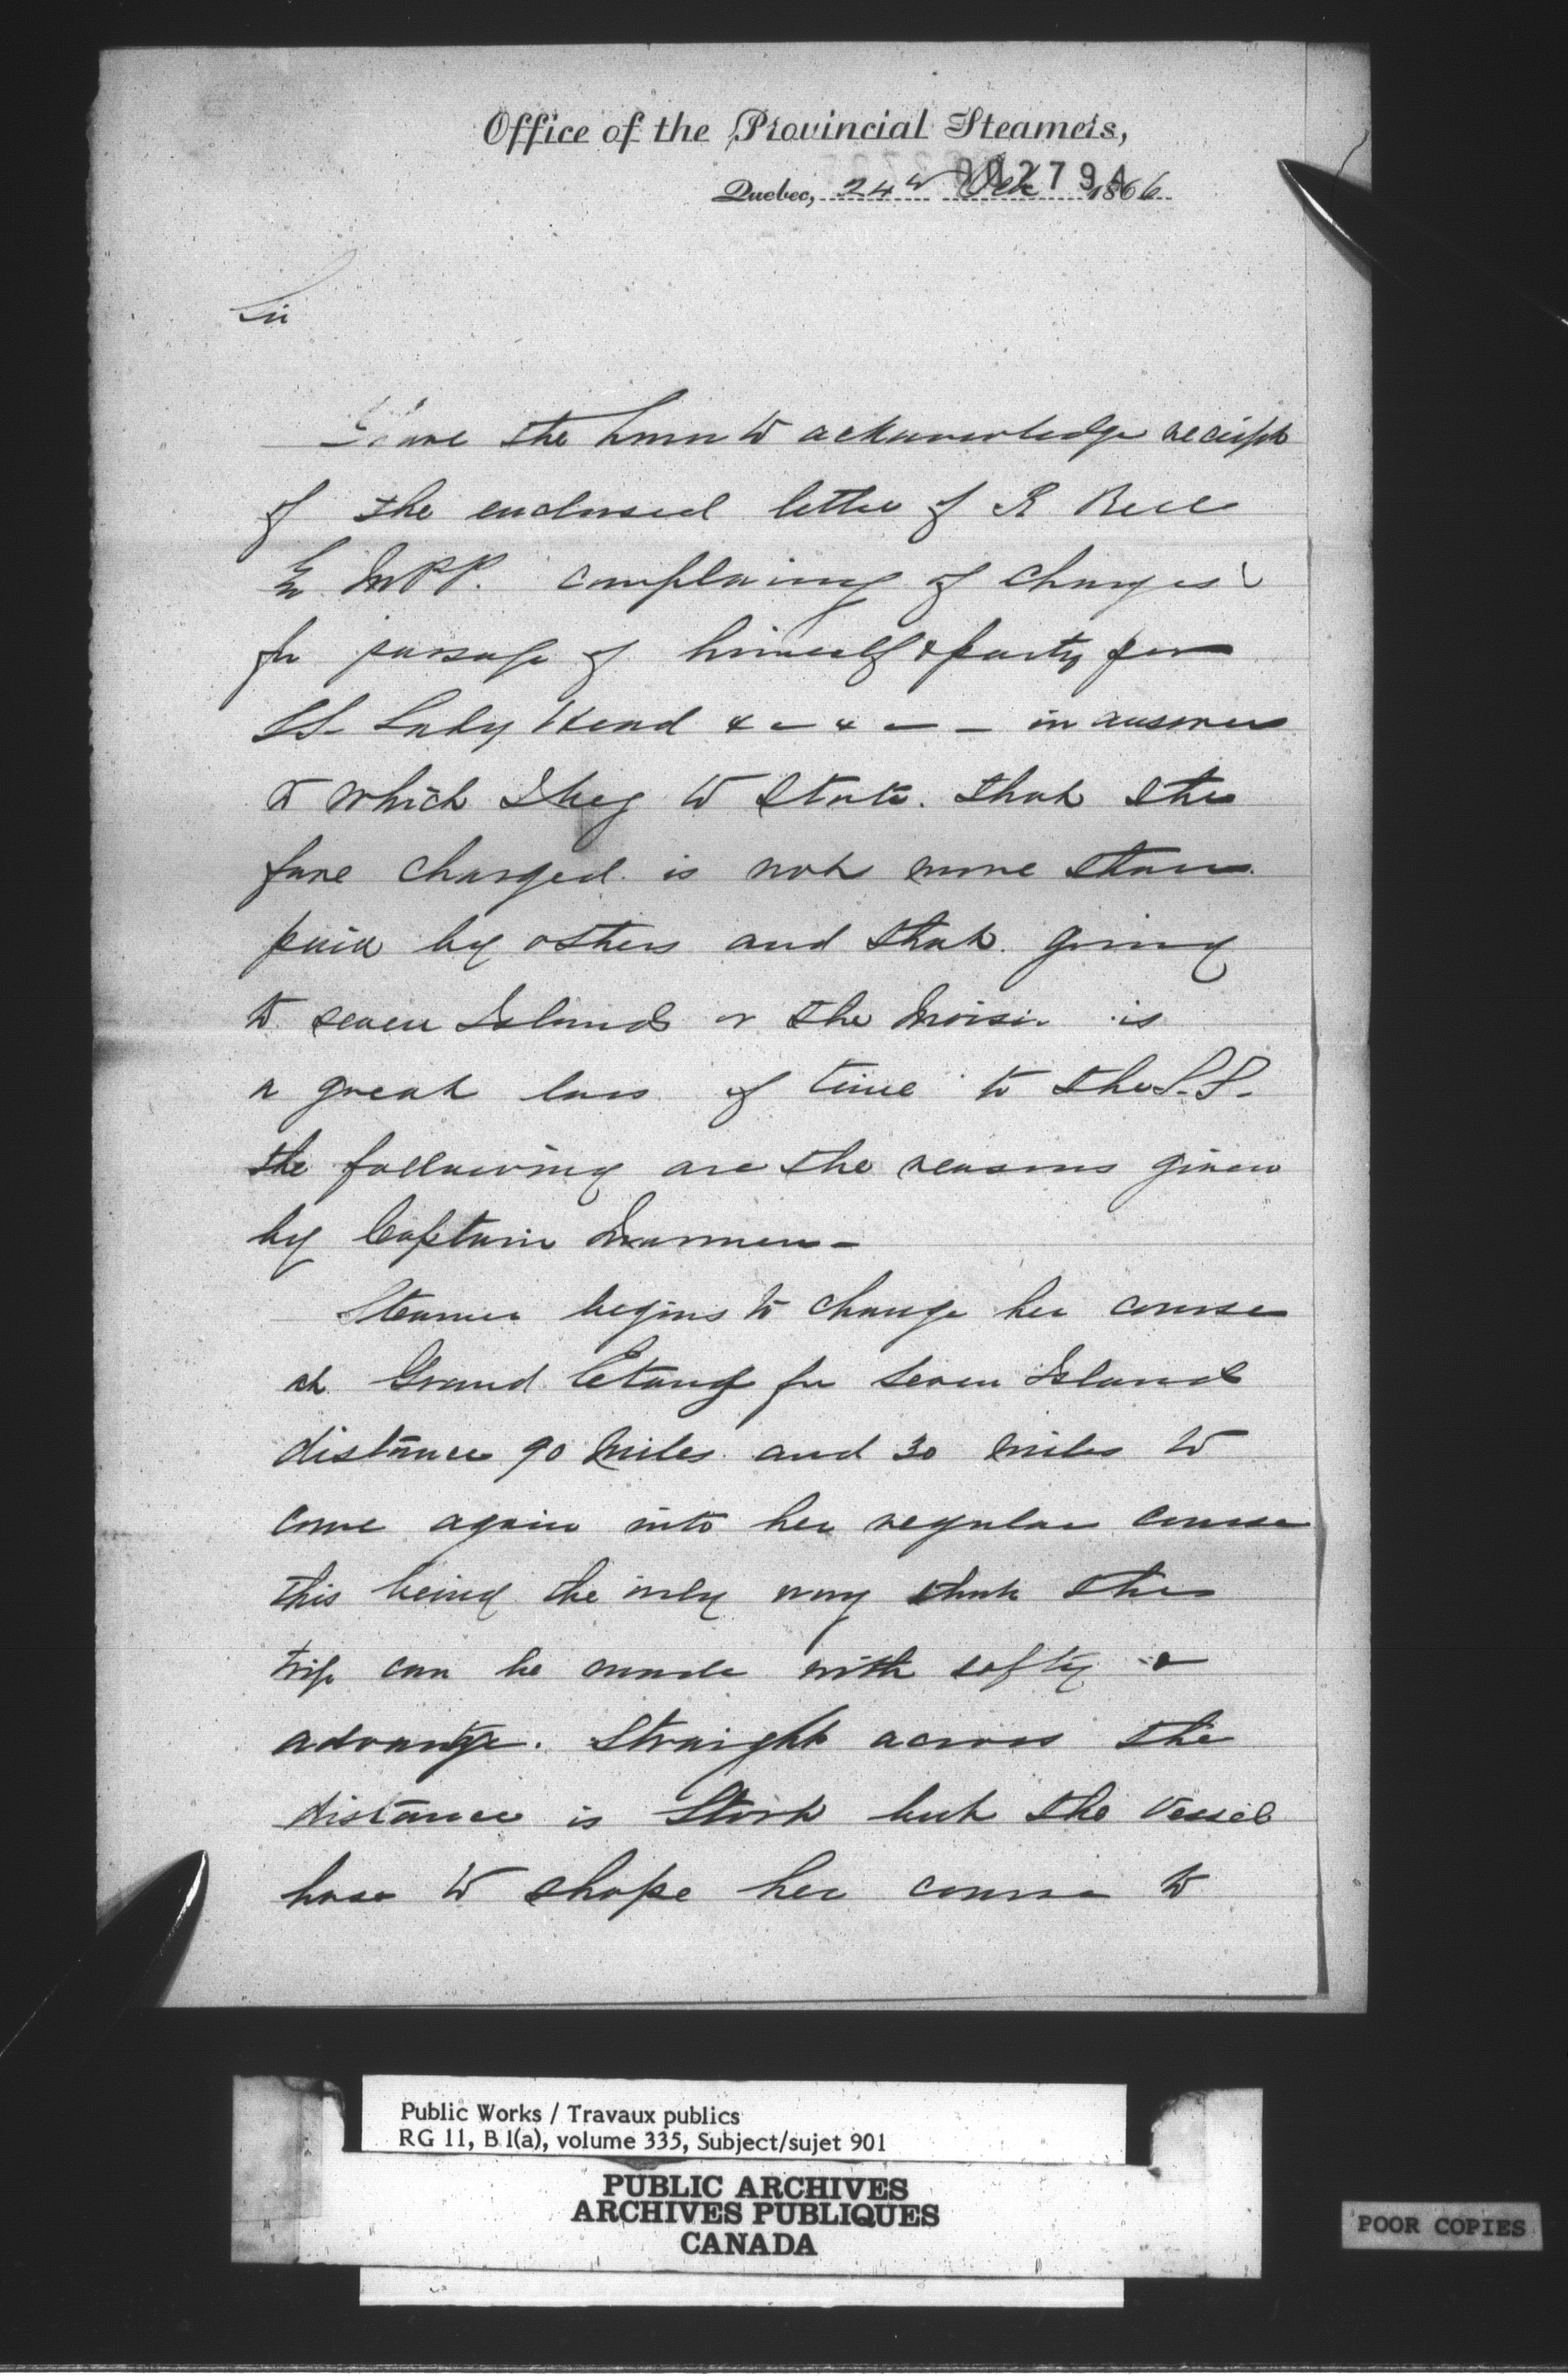 Office of the Provincial Steamers,
002794
Quebec, 24th Oct 1866
Sir
I have the honor to acknowledge receipt
of the enclosed letter of R Bell
Esq M.P.P. complaining of charges
for passage of himself & party per
SS. Lady Head & - & - - in answer
to which I beg to state. that the
fare charged is not more than
paid by others and that going
to seven Islands or the Moisie is
a great loss of time to the S.S.
the following are the reasons given
by Captain
Steamer begins to change her course
at Grand Etang for Seven Islands
distance 90 Miles and 30 miles to
come again into her regular course
this being the only way that the
trip can be made with safty &
advantge. Straight across the
distance is Short but the Vessel
has to shape her course to
Public Works / Travaux publics
RG 11, B1(a), volume 335, Subject/sujet 901
PUBLIC ARCHIVES
ARCHIVES PUBLIQUES
CANADA
POOR COPIES